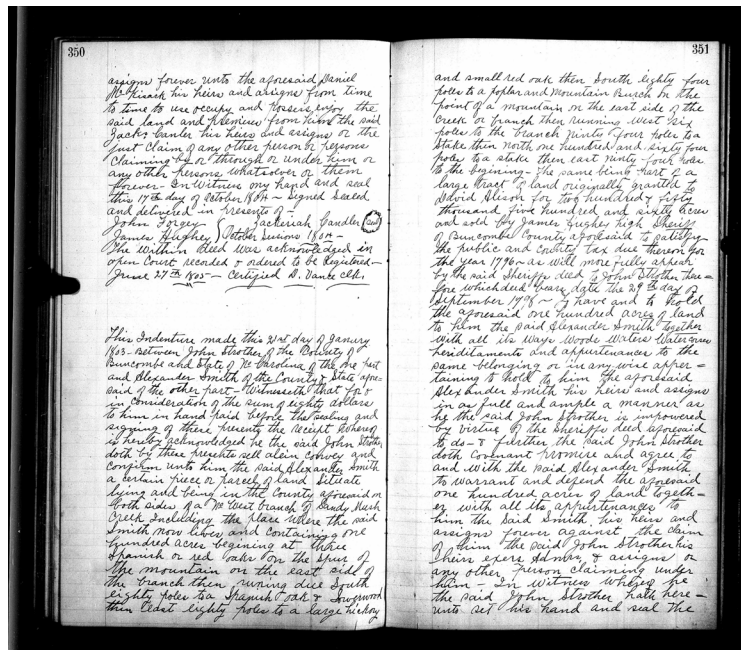 350
assigns forever unto the aforesaid Daniel
McKisick his heirs and assigns from time
to time to use occupy and possess, enjoy the
said land and premises from him the said
Jack's Canler his heirs and assigns or the
just Claim of any other person or persons
Claiming by or through or under him or
any other persons whatsoever or them
forever - In Witness my hand and seal
this 17th day of October 1804 - Signed Sealed
and delivered in presents of -
John Forgey Zackeriah Candler (Seal)
James Hughey } October Sessions 1804 -
The within Deed was acknowledged in
open Court recorded & ordered to be Registered -
June 27th 1805 - Certified D. Vance clk.
This Indenture made this 21st day of January
1803 - Between John Strother of the County of
Buncombe and State of No Carolina of the one part
and Alexander Smith of the County & State afore-
said of the other part - Witnesseth that for &
in Consideration of the sum of eighty dollars
to him in hand paid before the sealing and
signing of these presents the receipt whereof
is hereby acknowledged he the said John Strother
doth by these presents sell alein convey and
confirm unto him the said Alexander Smith
a certain piece or parcel of land Situate
lying and being in the County aforesaid on
both sides of a No West branch of Sandy Mush
Creek Including the place where the said
Smith now lives and containing one
hundred acres begining at three
Spanish or red oaks on the spur of
the mountain on the east side of
the branch then runing due South
eighty poles to a Spanish oak & Sowerwood
then East eighty poles to a large hickory
351
and small red oak then South eighty four
poles to a poplar and Mountain Burch on the
point of a mountain on the east side of the
Creek or branch then running West six
poles to the branch Ninty four poles to a
Stake then north one hundred and sixty four
poles to a stake then east ninty-four poles
to the begining - The same being part of a
large tract of land originally granted to
David Alison for two hundred & fifty
thousand five hundred and sixty acres
and sold by James Hughey high Sheriff
of Buncombe County aforesaid to satisfy
the public and County tax due thereon for
the year 1796 - as will more fully appear
by the said Sheriffs deed to John Strother there=
fore which deed bears date the 29th day of
September 1798 - To have and to Hold
the aforesaid one hundred acres of land
to him the said Alexander Smith together
with all its Ways Woods Waters Water courses
heriditaments and appurtenances to the
same belonging or in any wise apper=
taining to hold to him the aforesaid
Alexander Smith his heirs and assigns
in as full and ample a manner as
he the said John Strother is impowered
by virtue of the Sheriffs deed aforesaid
to do - & further the said John Strother
doth Covenant promise and agree to
and with the said Alexander Smith
to warrant and defend the aforesaid
one hundred acres of land togeth=
er with all its appurtenances to
him the Said Smith, his heirs and
assigns forever against the claim
of him the said John Strother his
heirs exers Admrs & assigns & or
any other person claiming under
him - In Witness whereof he
the said John Strother hath here=
unto set his hand and seal the